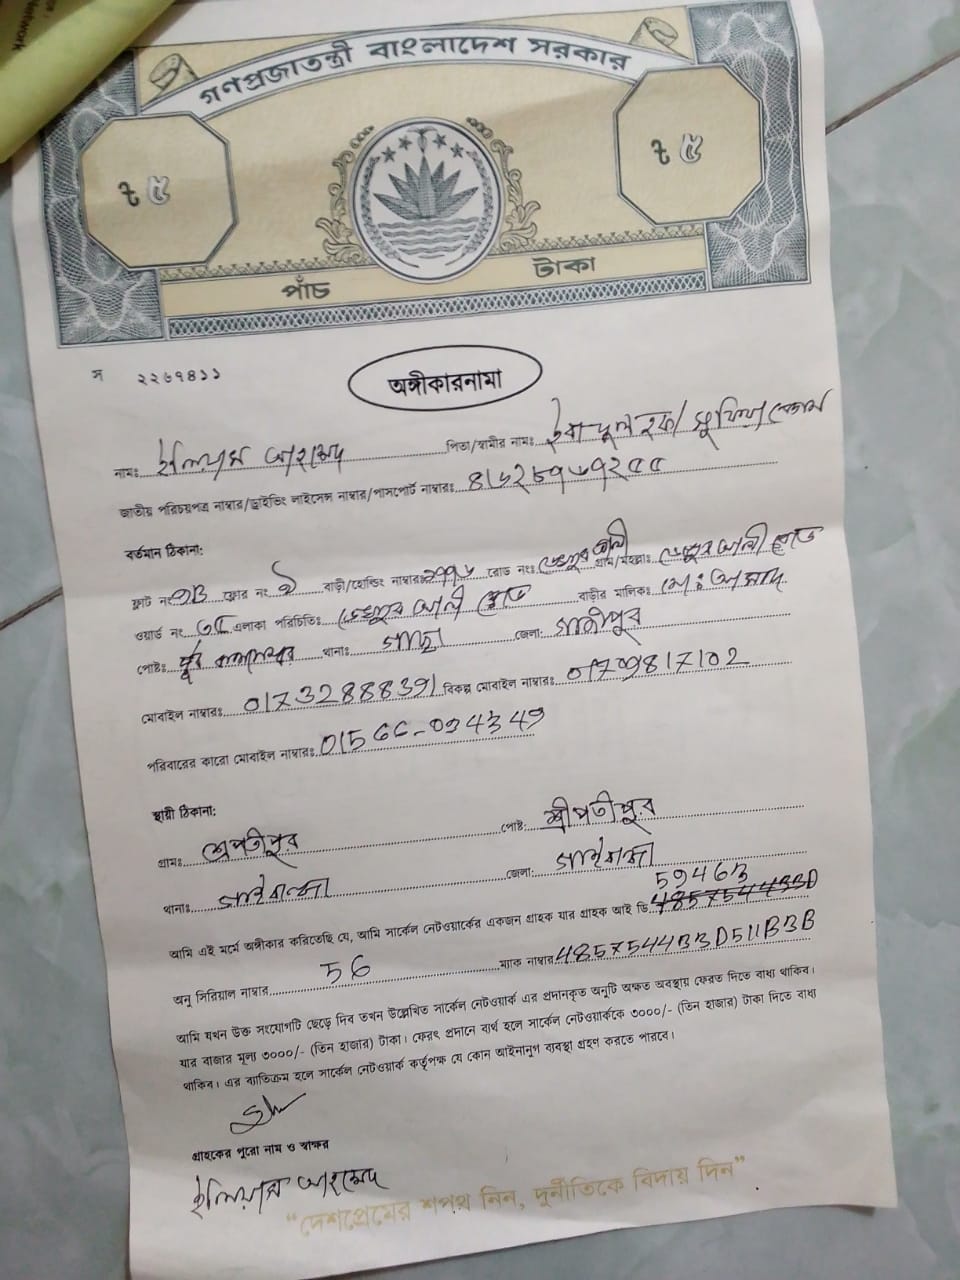 Network
গণপ্রজাতন্ত্রী বাংলাদেশ সরকার
৳ ৫
৳ ৫
পাঁচ টাকা
স ২২৬৭৪১১
অঙ্গীকারনামা
নামঃ ইলিয়াস আহমেদ পিতা/স্বামীর নামঃ
জাতীয় পরিচয়পত্র নাম্বার/ড্রাইভিং লাইসেন্স নাম্বার/পাসপোর্ট নাম্বারঃ
বর্তমান ঠিকানা:
ফ্লাট নং ফ্লোর নং বাড়ী/হোল্ডিং নাম্বারঃ রোড নংঃ গ্রাম/মহল্লাঃ
ওয়ার্ড নং ৩৫ এলাকা পরিচিতিঃ বাড়ীর মালিকঃ
পোষ্টঃ থানাঃ গাছা জেলা: গাজীপুর
মোবাইল নাম্বারঃ 01732888391 বিকল্প মোবাইল নাম্বারঃ 01709817102
পরিবারের কারো মোবাইল নাম্বারঃ 01566-094349
স্থায়ী ঠিকানা:
গ্রামঃ শ্রীপতীপুর পোষ্ট: শ্রীপতীপুর
থানাঃ গাইবান্ধা জেলা: গাইবান্ধা
59463
আমি এই মর্মে অঙ্গীকার করিতেছি যে, আমি সার্কেল নেটওয়ার্কের একজন গ্রাহক যার গ্রাহক আই ডি
অনু সিরিয়াল নাম্বার 56 ম্যাক নাম্বার 4857544B3D511B3B
আমি যখন উক্ত সংযোগটি ছেড়ে দিব তখন উল্লেখিত সার্কেল নেটওয়ার্ক এর প্রদানকৃত অনুটি অক্ষত অবস্থায় ফেরত দিতে বাধ্য থাকিব।
যার বাজার মূল্য ৩০০০/- (তিন হাজার) টাকা। ফেরৎ প্রদানে ব্যর্থ হলে সার্কেল নেটওয়ার্ককে ৩০০০/- (তিন হাজার) টাকা দিতে বাধ্য
থাকিব। এর ব্যতিক্রম হলে সার্কেল নেটওয়ার্ক কর্তৃপক্ষ যে কোন আইনানুগ ব্যবস্থা গ্রহণ করতে পারবে।
গ্রাহকের পুরো নাম ও স্বাক্ষর
ইলিয়াস আহমেদ
"দেশপ্রেমের শপথ নিন, দুর্নীতিকে বিদায় দিন"